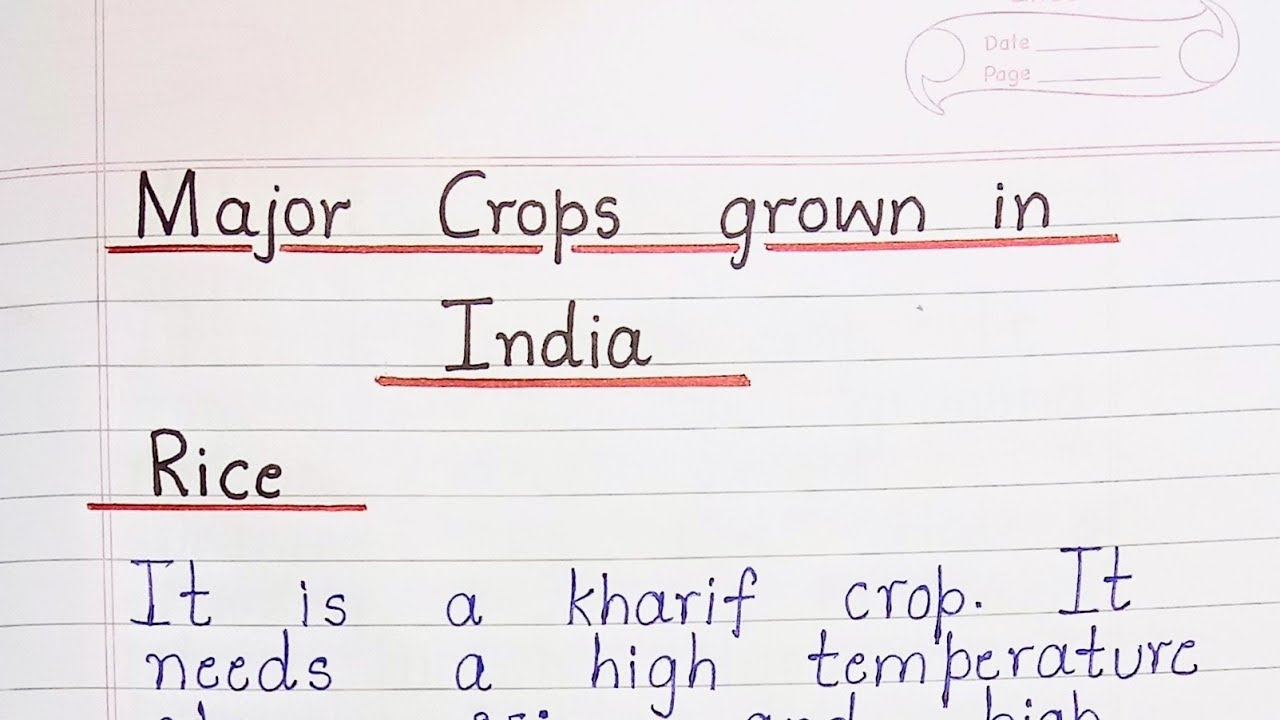 Date
Page
Major Crops grown in
India
Rice
It is a kharif crop. It
needs a high temperature
and high